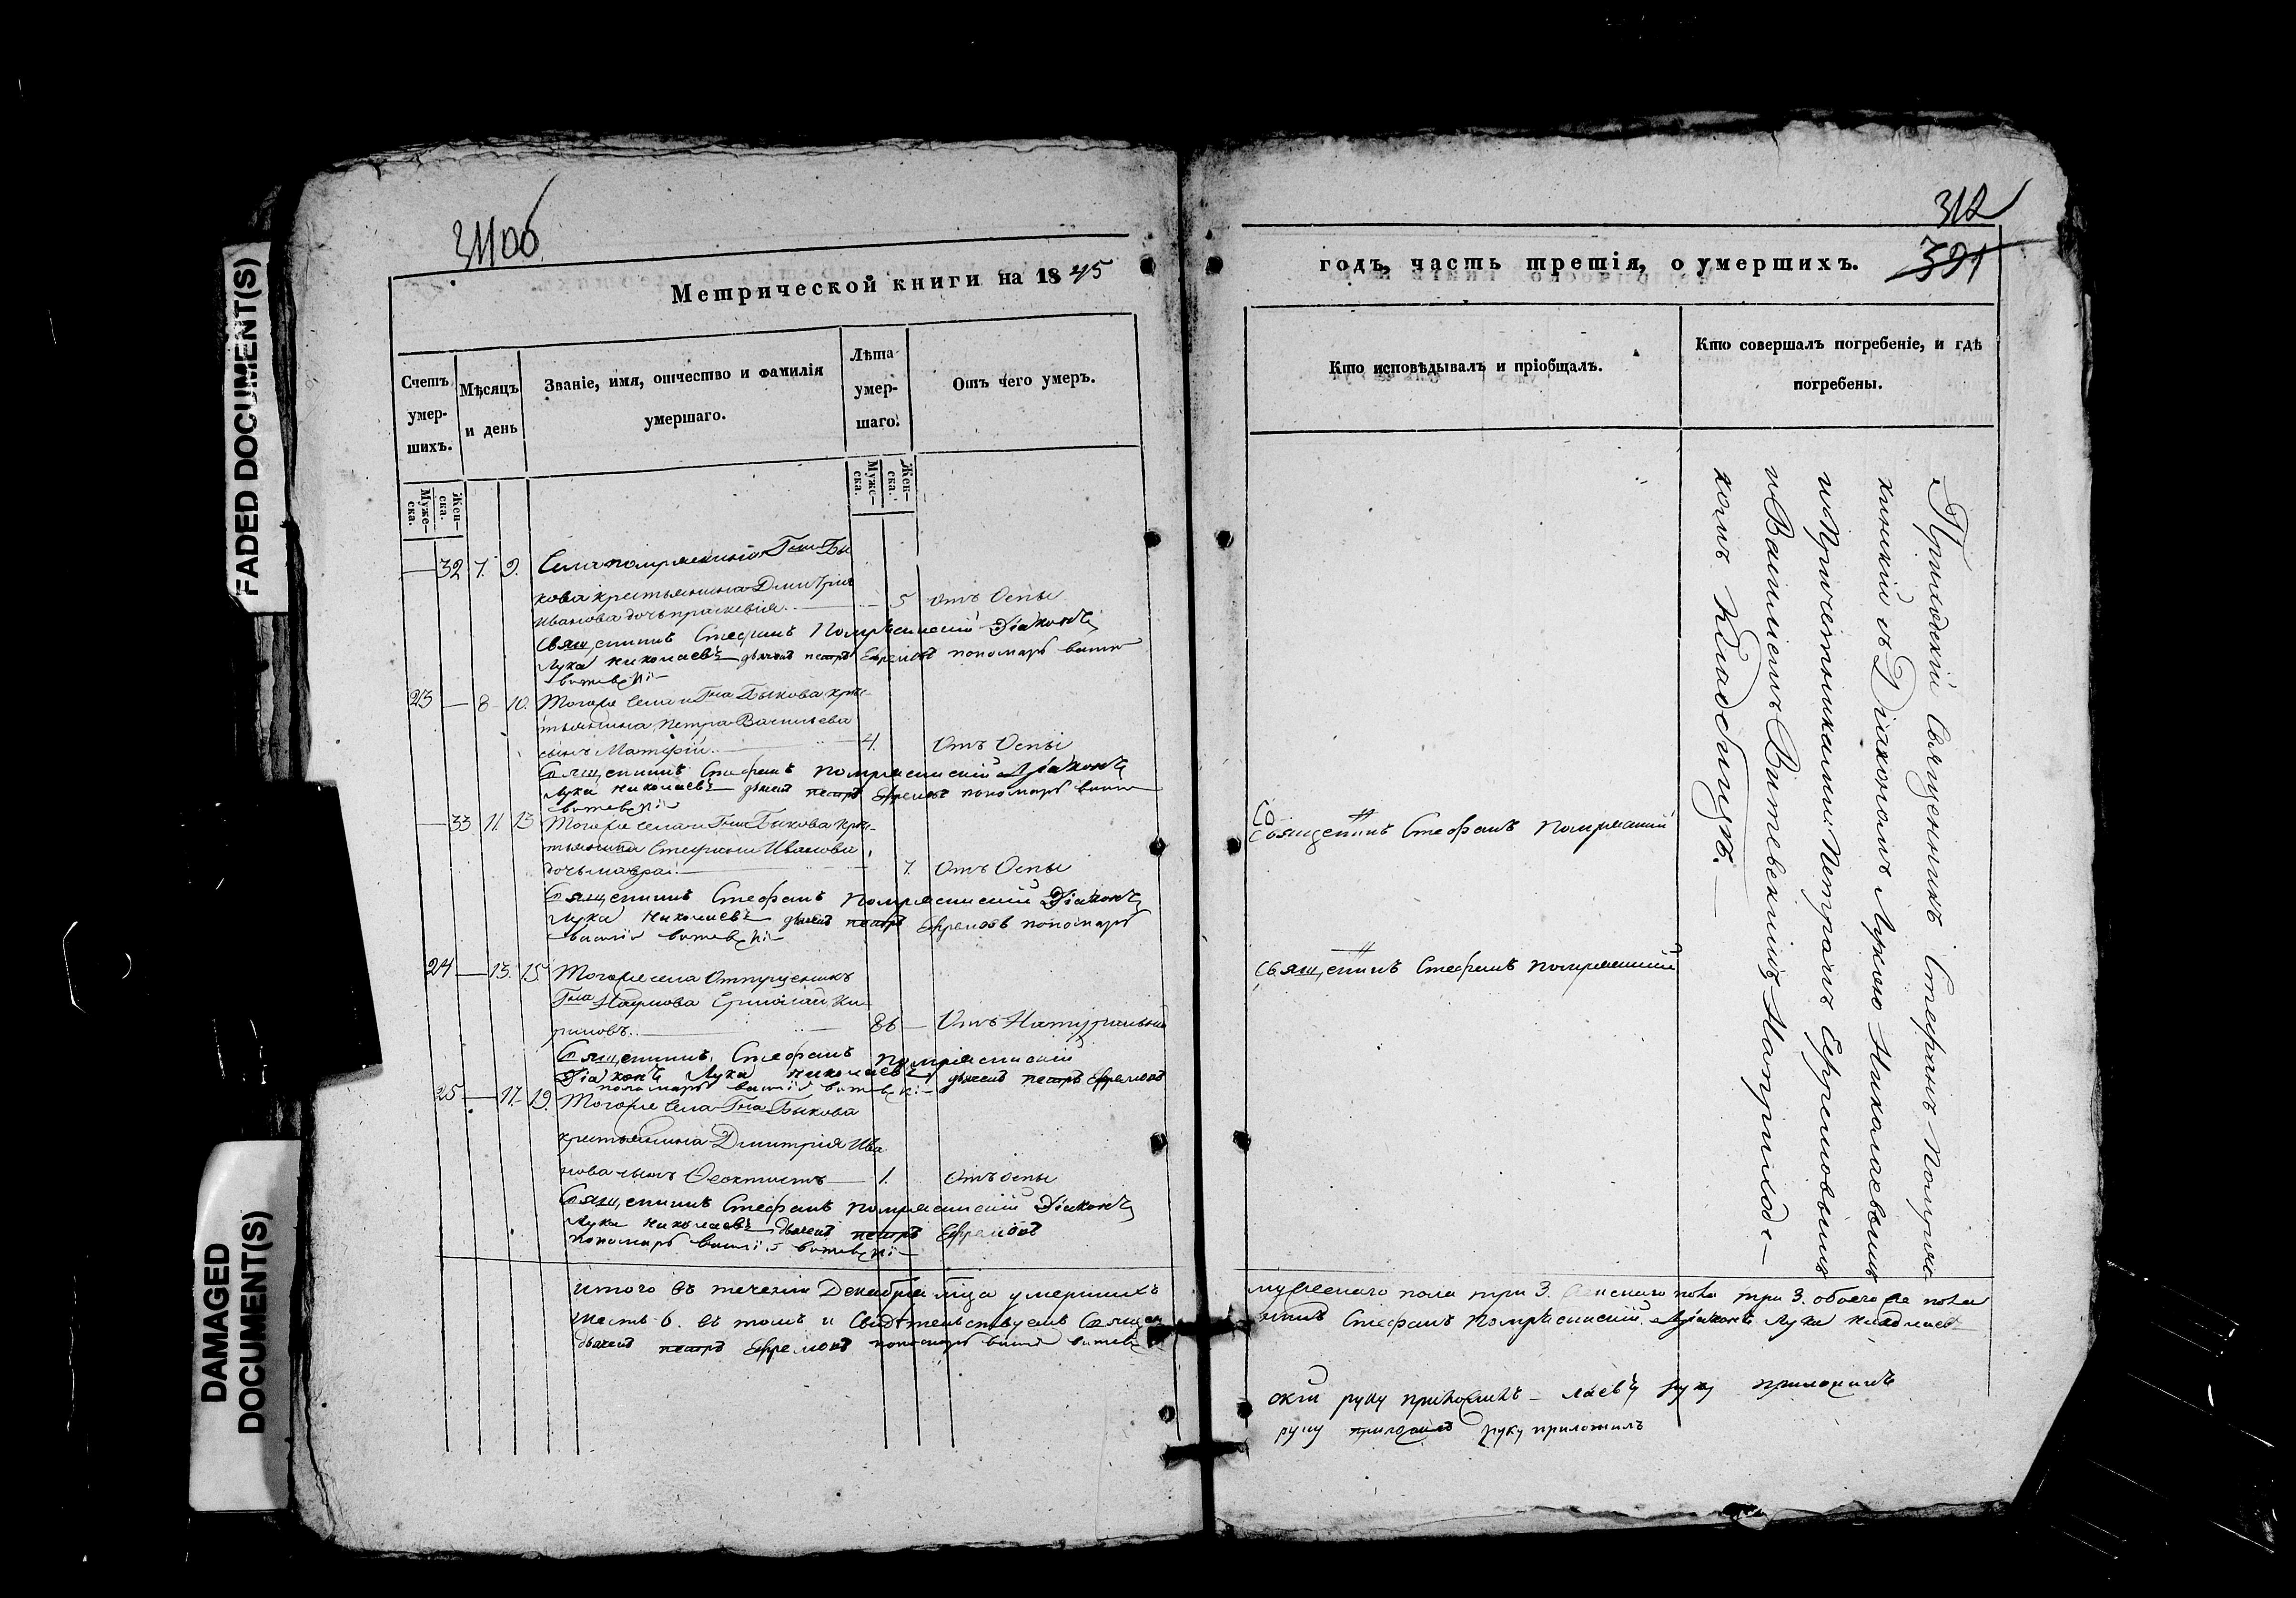 FADED DOCUMENT(S)
DAMAGED
DOCUMENT(S)
311об
Метрической книги на 1845
Счетъ
умер-
шихъ.
Мѣсяцъ
и день
Званіе, имя, отчество и фамилія
умершаго.
Лѣта
умер-
шаго.
Отъ чего умеръ.
Муже-
ска.
Жен-
ска.
Муже-
ска.
Жен-
ска.
— 32 7. 9. Села Г-на Бы
кова крестьянина Дмитрія
Иванова дочь праскевія. — 5 отъ Оспы
Священникъ Стефанъ Діаконъ
Лука Николаевъ дьячекъ петръ Ефремовъ пономарь
23 — 8 10. Тогоже Села и Г-на Быкова кре-
стьянина Петра Васильева
сынъ Матфій. — 4. Отъ Оспы
Священникъ Стефанъ Діаконъ
Лука Николаевъ дьячекъ петръ Ефремовъ пономарь
— 33 11. 13 Тогоже села и Г-на Быкова кре-
стьянина Стефана Иванова
дочь мавра. — 7. Отъ Оспы
Священникъ Стефанъ Діаконъ
Лука Николаевъ дьячекъ петръ Ефремовъ пономарь
василій витевскій
24 — 13. 15 Тогоже села Отпущеникъ
Г-на Наумова Ермолай Ки
риловъ. — 86 — Отъ Натуральной
Священникъ Стефанъ
Діаконъ Лука Николаевъ дьячекъ петръ Ефремовъ
пономарь василій витевскій
25 — 17. 19. Тогоже Села Г-на Быкова
крестьянина Дмитрія Ива
нова сынъ Ѳеоктистъ — 1. Отъ оспы
Священникъ Стефанъ Діаконъ
Лука Николаевъ дьячекъ петръ Ефремовъ
пономарь василій витевскій
итого въ теченіи Декабря м-ца умершихъ
шесть 6. въ томъ и Свидѣтельствуемъ Священ
дьячекъ петръ Ефремовъ пономарь василій витевск
312
391
годъ, часть третія, о умершихъ.
Кто исповѣдывалъ и пріобщалъ.
Кто совершалъ погребеніе, и гдѣ
погребены.
Священникъ Стефанъ
Священникъ Стефанъ
Приходскій Священникъ Стефанъ
съ Діакономъ Лукою Николаевымъ
и Причетниками: Петромъ Ефремовымъ
и Василіемъ Витевскимъ На приход-
комъ Кладбищѣ. —
мужескаго пола три 3. женскаго пола три 3. обоего же пола
никъ Стефанъ Діаконъ Лука Николаев
скій руку приложилъ — лаевъ руку приложилъ
руку приложилъ руку приложилъ